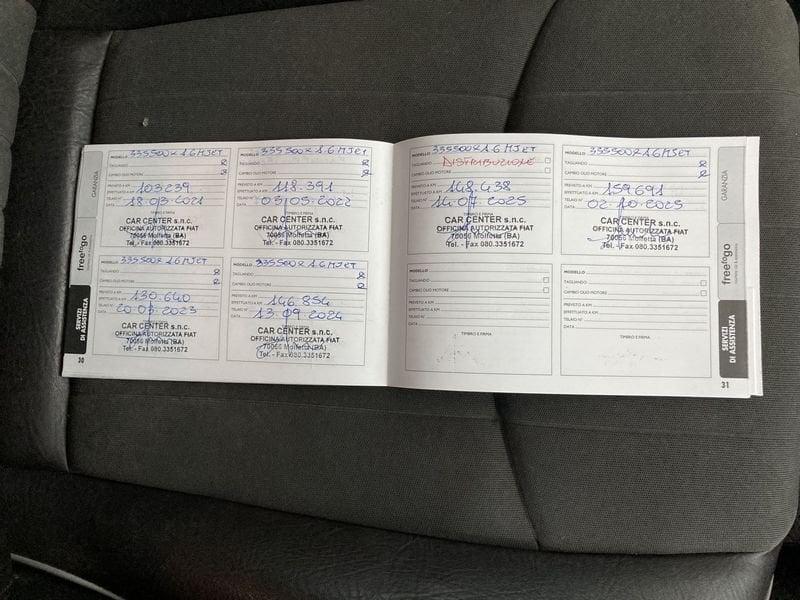 MODELLO 335500X 1.6 MJET
TAGLIANDO
CAMBIO OLIO MOTORE
PREVISTO A KM
EFFETTUATO A KM 103239
TELAIO N°
DATA 18.03.2021
TIMBRO E FIRMA
CAR CENTER s.n.c.
OFFICINA AUTORIZZATA FIAT
70056 Molfetta (BA)
Tel. - Fax 080.3351672
MODELLO 335500X 1.6 MJET
TAGLIANDO
CAMBIO OLIO MOTORE
PREVISTO A KM
EFFETTUATO A KM 118.391
TELAIO N°
DATA 05.05.2022
TIMBRO E FIRMA
CAR CENTER s.n.c.
OFFICINA AUTORIZZATA FIAT
70056 Molfetta (BA)
Tel. - Fax 080.3351672
MODELLO 335500X 1.6 MJET
TAGLIANDO
CAMBIO OLIO MOTORE
PREVISTO A KM
EFFETTUATO A KM 130.640
TELAIO N°
DATA
CAR CENTER s.n.c.
OFFICINA AUTORIZZATA FIAT
70056 Molfetta (BA)
Tel. - Fax 080.3351672
MODELLO 335500X 1.6 MJET
TAGLIANDO
CAMBIO OLIO MOTORE
PREVISTO A KM
EFFETTUATO A KM 146.854
TELAIO N°
DATA 13.09.2024
CAR CENTER s.n.c.
OFFICINA AUTORIZZATA FIAT
70056 Molfetta (BA)
Tel. - Fax 080.3351672
GARANZIA
freetogo
SERVIZI
DI ASSISTENZA
30
MODELLO 335500X 1.6 MJET
TAGLIANDO DISTRIBUZIONE
CAMBIO OLIO MOTORE
PREVISTO A KM
EFFETTUATO A KM 148.438
TELAIO N°
DATA 14.07.2025
TIMBRO E FIRMA
CAR CENTER s.n.c.
OFFICINA AUTORIZZATA FIAT
70056 Molfetta (BA)
Tel. - Fax 080.3351672
MODELLO 335500X 1.6 MJET
TAGLIANDO
CAMBIO OLIO MOTORE
PREVISTO A KM
EFFETTUATO A KM 159691
TELAIO N°
DATA 02.10.2025
TIMBRO E FIRMA
CAR CENTER s.n.c.
OFFICINA AUTORIZZATA FIAT
70056 Molfetta (BA)
Tel. - Fax 080.3351672
MODELLO
TAGLIANDO
CAMBIO OLIO MOTORE
PREVISTO A KM
EFFETTUATO A KM
TELAIO N°
DATA
TIMBRO E FIRMA
MODELLO
TAGLIANDO
CAMBIO OLIO MOTORE
PREVISTO A KM
EFFETTUATO A KM
TELAIO N°
DATA
TIMBRO E FIRMA
GARANZIA
freetogo
SERVIZI
DI ASSISTENZA
31